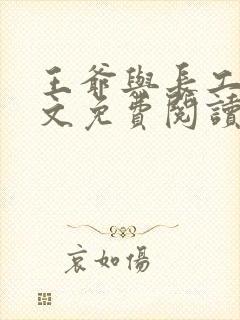 王爺與長工
文免費閱讀
哀如傷